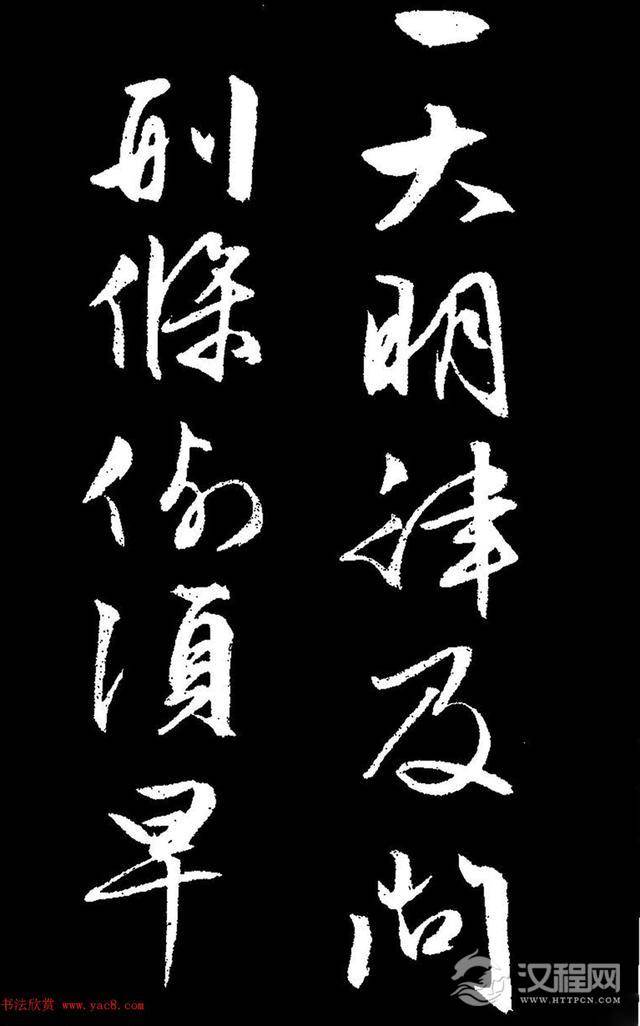 一大明律及問
刑條例須早
书法欣赏 www.yac8.com
汉程网
WWW.HTTPCN.COM